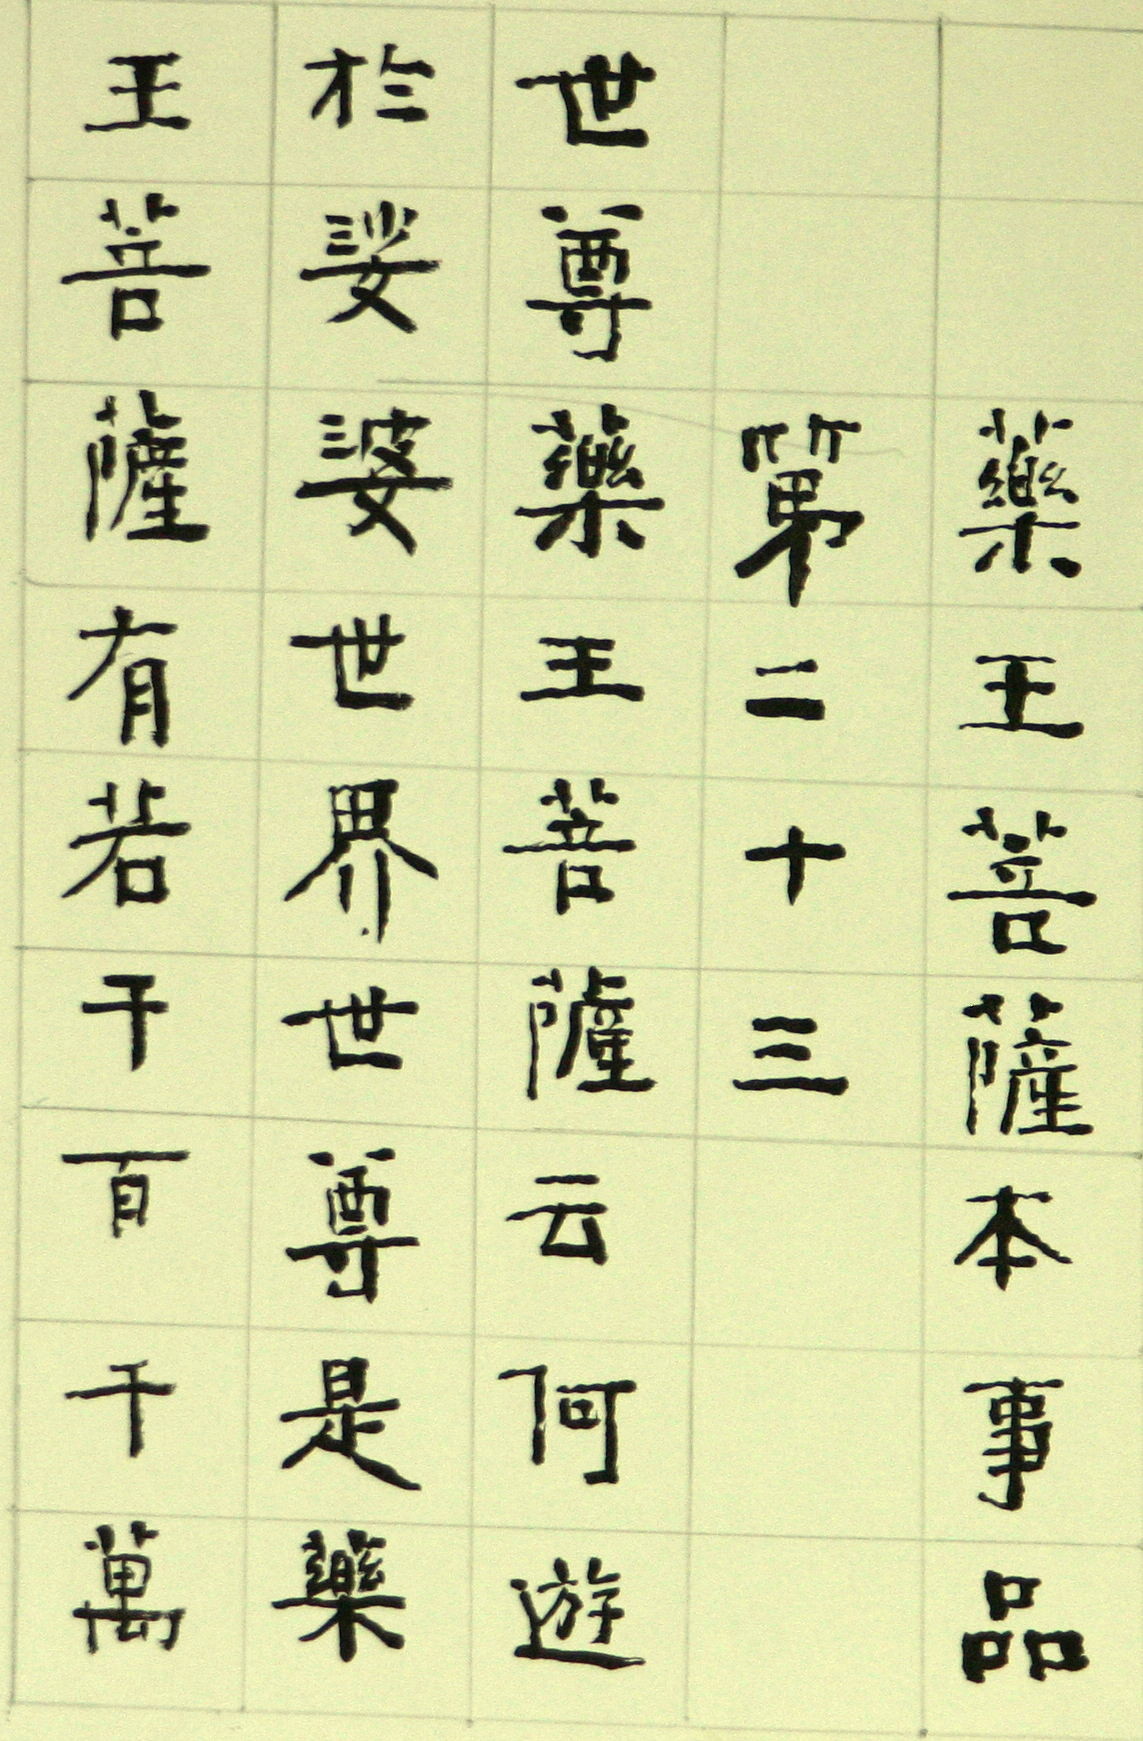 藥王菩薩本事品
第二十三
世尊藥王菩薩云何遊
於娑婆世界世尊是藥
王菩薩有若干百千萬